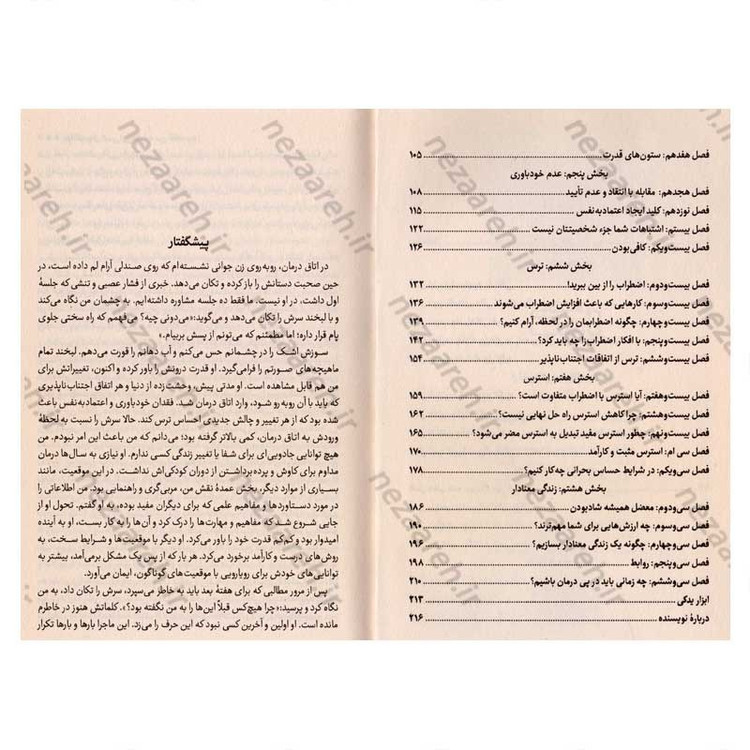 فصل هفدهم: ستون‌های قدرت ........ ۱۰۵
بخش پنجم: عدم خودباوری
فصل هجدهم: مقابله با انتقاد و عدم تأیید ........ ۱۰۸
فصل نوزدهم: کلید ایجاد اعتمادبه‌نفس ........ ۱۱۵
فصل بیستم: اشتباهات شما جزء شخصیتتان نیست ........ ۱۲۲
فصل بیست‌ویکم: کافی‌بودن ........ ۱۲۶
بخش ششم: ترس
فصل بیست‌ودوم: اضطراب را از بین ببرید! ........ ۱۳۲
فصل بیست‌وسوم: کارهایی که باعث افزایش اضطراب می‌شوند ........ ۱۳۶
فصل بیست‌وچهارم: چگونه اضطرابمان را در لحظه، آرام کنیم؟ ........ ۱۳۹
فصل بیست‌وپنجم: با افکار اضطراب‌زا چه باید کرد؟ ........ ۱۴۲
فصل بیست‌وششم: ترس از اتفاقات اجتناب‌ناپذیر ........ ۱۵۴
بخش هفتم: استرس
فصل بیست‌وهفتم: آیا استرس با اضطراب متفاوت است؟ ........ ۱۵۹
فصل بیست‌وهشتم: چرا کاهش استرس راه حل نهایی نیست؟ ........ ۱۶۲
فصل بیست‌ونهم: چطور استرس مفید تبدیل به استرس مضر می‌شود؟ ........ ۱۶۵
فصل سی ام: استرس مثبت و کارآمد ........ ۱۷۰
فصل سی‌ویکم: در شرایط حساس بحرانی چه‌کار کنیم؟ ........ ۱۷۸
بخش هشتم: زندگی معنادار
فصل سی‌ودوم: معضل همیشه شادبودن ........ ۱۸۶
فصل سی‌وسوم: چه ارزش‌هایی برای شما مهم‌ترند؟ ........ ۱۹۰
فصل سی‌وچهارم: چگونه یک زندگی معنادار بسازیم؟ ........ ۱۹۶
فصل سی‌وپنجم: روابط ........ ۱۹۸
فصل سی‌وششم: چه زمانی باید در پی درمان باشیم؟ ........ ۲۱۰
ابزار یدکی ........ ۲۱۳
دربارهٔ نویسنده ........ ۲۱۶
پیشگفتار
در اتاق درمان، روبه‌روی زن جوانی نشسته‌ام که روی صندلی آرام لم داده است، در
حین صحبت دستانش را باز کرده و تکان می‌دهد. خبری از فشار عصبی و تنشی که جلسهٔ
اول داشت، در او نیست. ما فقط ده جلسه مشاوره داشته‌ایم. به چشمان من نگاه می‌کند
و با لبخند سرش را تکان می‌دهد و می‌گوید: «می‌دونی چیه؟ می‌فهمم که راه سختی جلوی
پام قرار داره؛ اما مطمئنم که می‌تونم از پسش بربیام.»
سوزش اشک را در چشمانم حس می‌کنم و آب دهانم را قورت می‌دهم. لبخند تمام
ماهیچه‌های صورتم را فرامی‌گیرد. او قدرت درونش را باور کرده و اکنون، تغییراتش برای
من هم قابل مشاهده است. او مدتی پیش، وحشت‌زده از دنیا و هر اتفاق اجتناب‌ناپذیری
که باید با آن روبه رو شود، وارد اتاق درمان شد. فقدان خودباوری و اعتمادبه‌نفس باعث
شده بود که از هر تغییر و چالش جدیدی احساس ترس کند. حالا سرش را نسبت به لحظهٔ
ورودش به اتاق درمان، کمی بالاتر گرفته بود؛ می‌دانم که من باعث این امر نبودم. من
هیچ توانایی جادویی‌ای برای شفا یا تغییر زندگی کسی ندارم. او نیازی به سال‌ها درمان
مداوم برای کاوش و پرده‌برداشتن از دوران کودکی‌اش نداشت. در این موقعیت، مانند
بسیاری از موارد دیگر، بخش عمدهٔ نقش من، مربی‌گری و راهنمایی بود. من اطلاعاتی را
در مورد دستاوردها و مفاهیم علمی که برای دیگران مفید بوده، به او گفتم. تحول او از
جایی شروع شد که مفاهیم و مهارت‌ها را درک کرد و آن‌ها را به کار بست، او به آینده
امیدوار بود و کم‌کم قدرت خود را باور می‌کرد. او دیگر با موقعیت‌ها و شرایط سخت، به
روش‌های درست و کارآمد برخورد می‌کرد. هر بار که از پس یک مشکل برمی‌آمد، بیشتر به
توانایی های خودش برای رویارویی با موقعیت‌های گوناگون، ایمان می‌آورد.
پس از مرور مطالبی که برای هفتهٔ بعد باید به خاطر می‌سپرد، سرش را تکان داد، به من
نگاه کرد و پرسید: «چرا هیچ‌کس قبلاً این‌ها را به من نگفته بود؟». کلماتش هنوز در خاطرم
مانده است. او اولین و آخرین کسی نبود که این حرف را می‌زد. این ماجرا بارها و بارها تکرار
nezaareh.ir